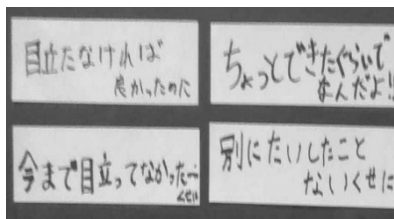 目立たなければ
良かったのに
ちょっとできたぐらいで
なんだよ!!
今まで目立ってなかった
くせに
別にたいしたこと
ないくせに